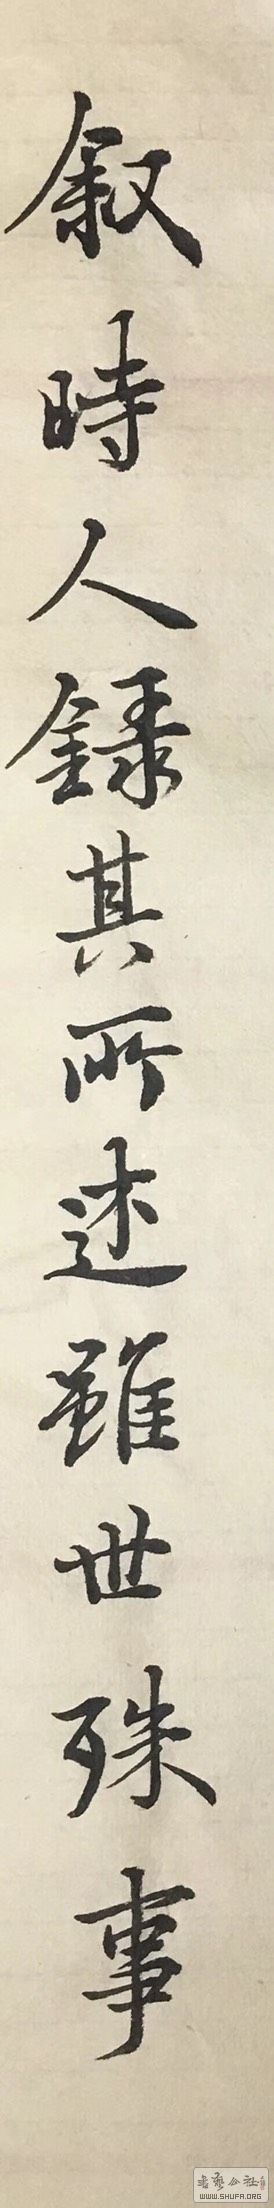 叙時人録其所述雖世殊事
WWW.SHUFA.ORG